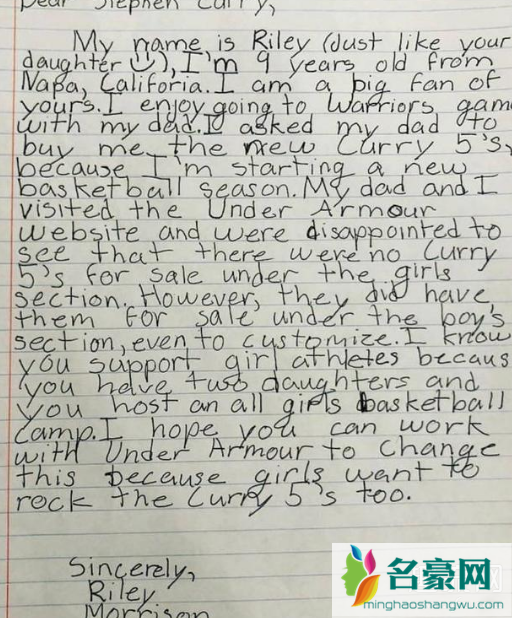 Dear Stephen Curry,
My name is Riley (Just like your
daughter), I'm 9 years old from
Napa, Califoria. I am a big fan of
yours. I enjoy going to Warriors gam
with my dad. I asked my dad to
buy me the new Curry 5's,
because I'm starting a new
basketball season. My dad and I
visited the Under Armour
website and were disappointed to
see that there were no Curry
5's for sale under the girls
section. However, they did have
them for sale under the boy's
section, even to customize. I know
you support girl athletes becaus
you have two daughters and
you host an all girls basketball
camp. I hope you can work
with Under Armour to change
this because girls want to
rock the Curry 5's too.
Sincerely,
Riley
Morrison
名豪网
minghaoshangwu.com